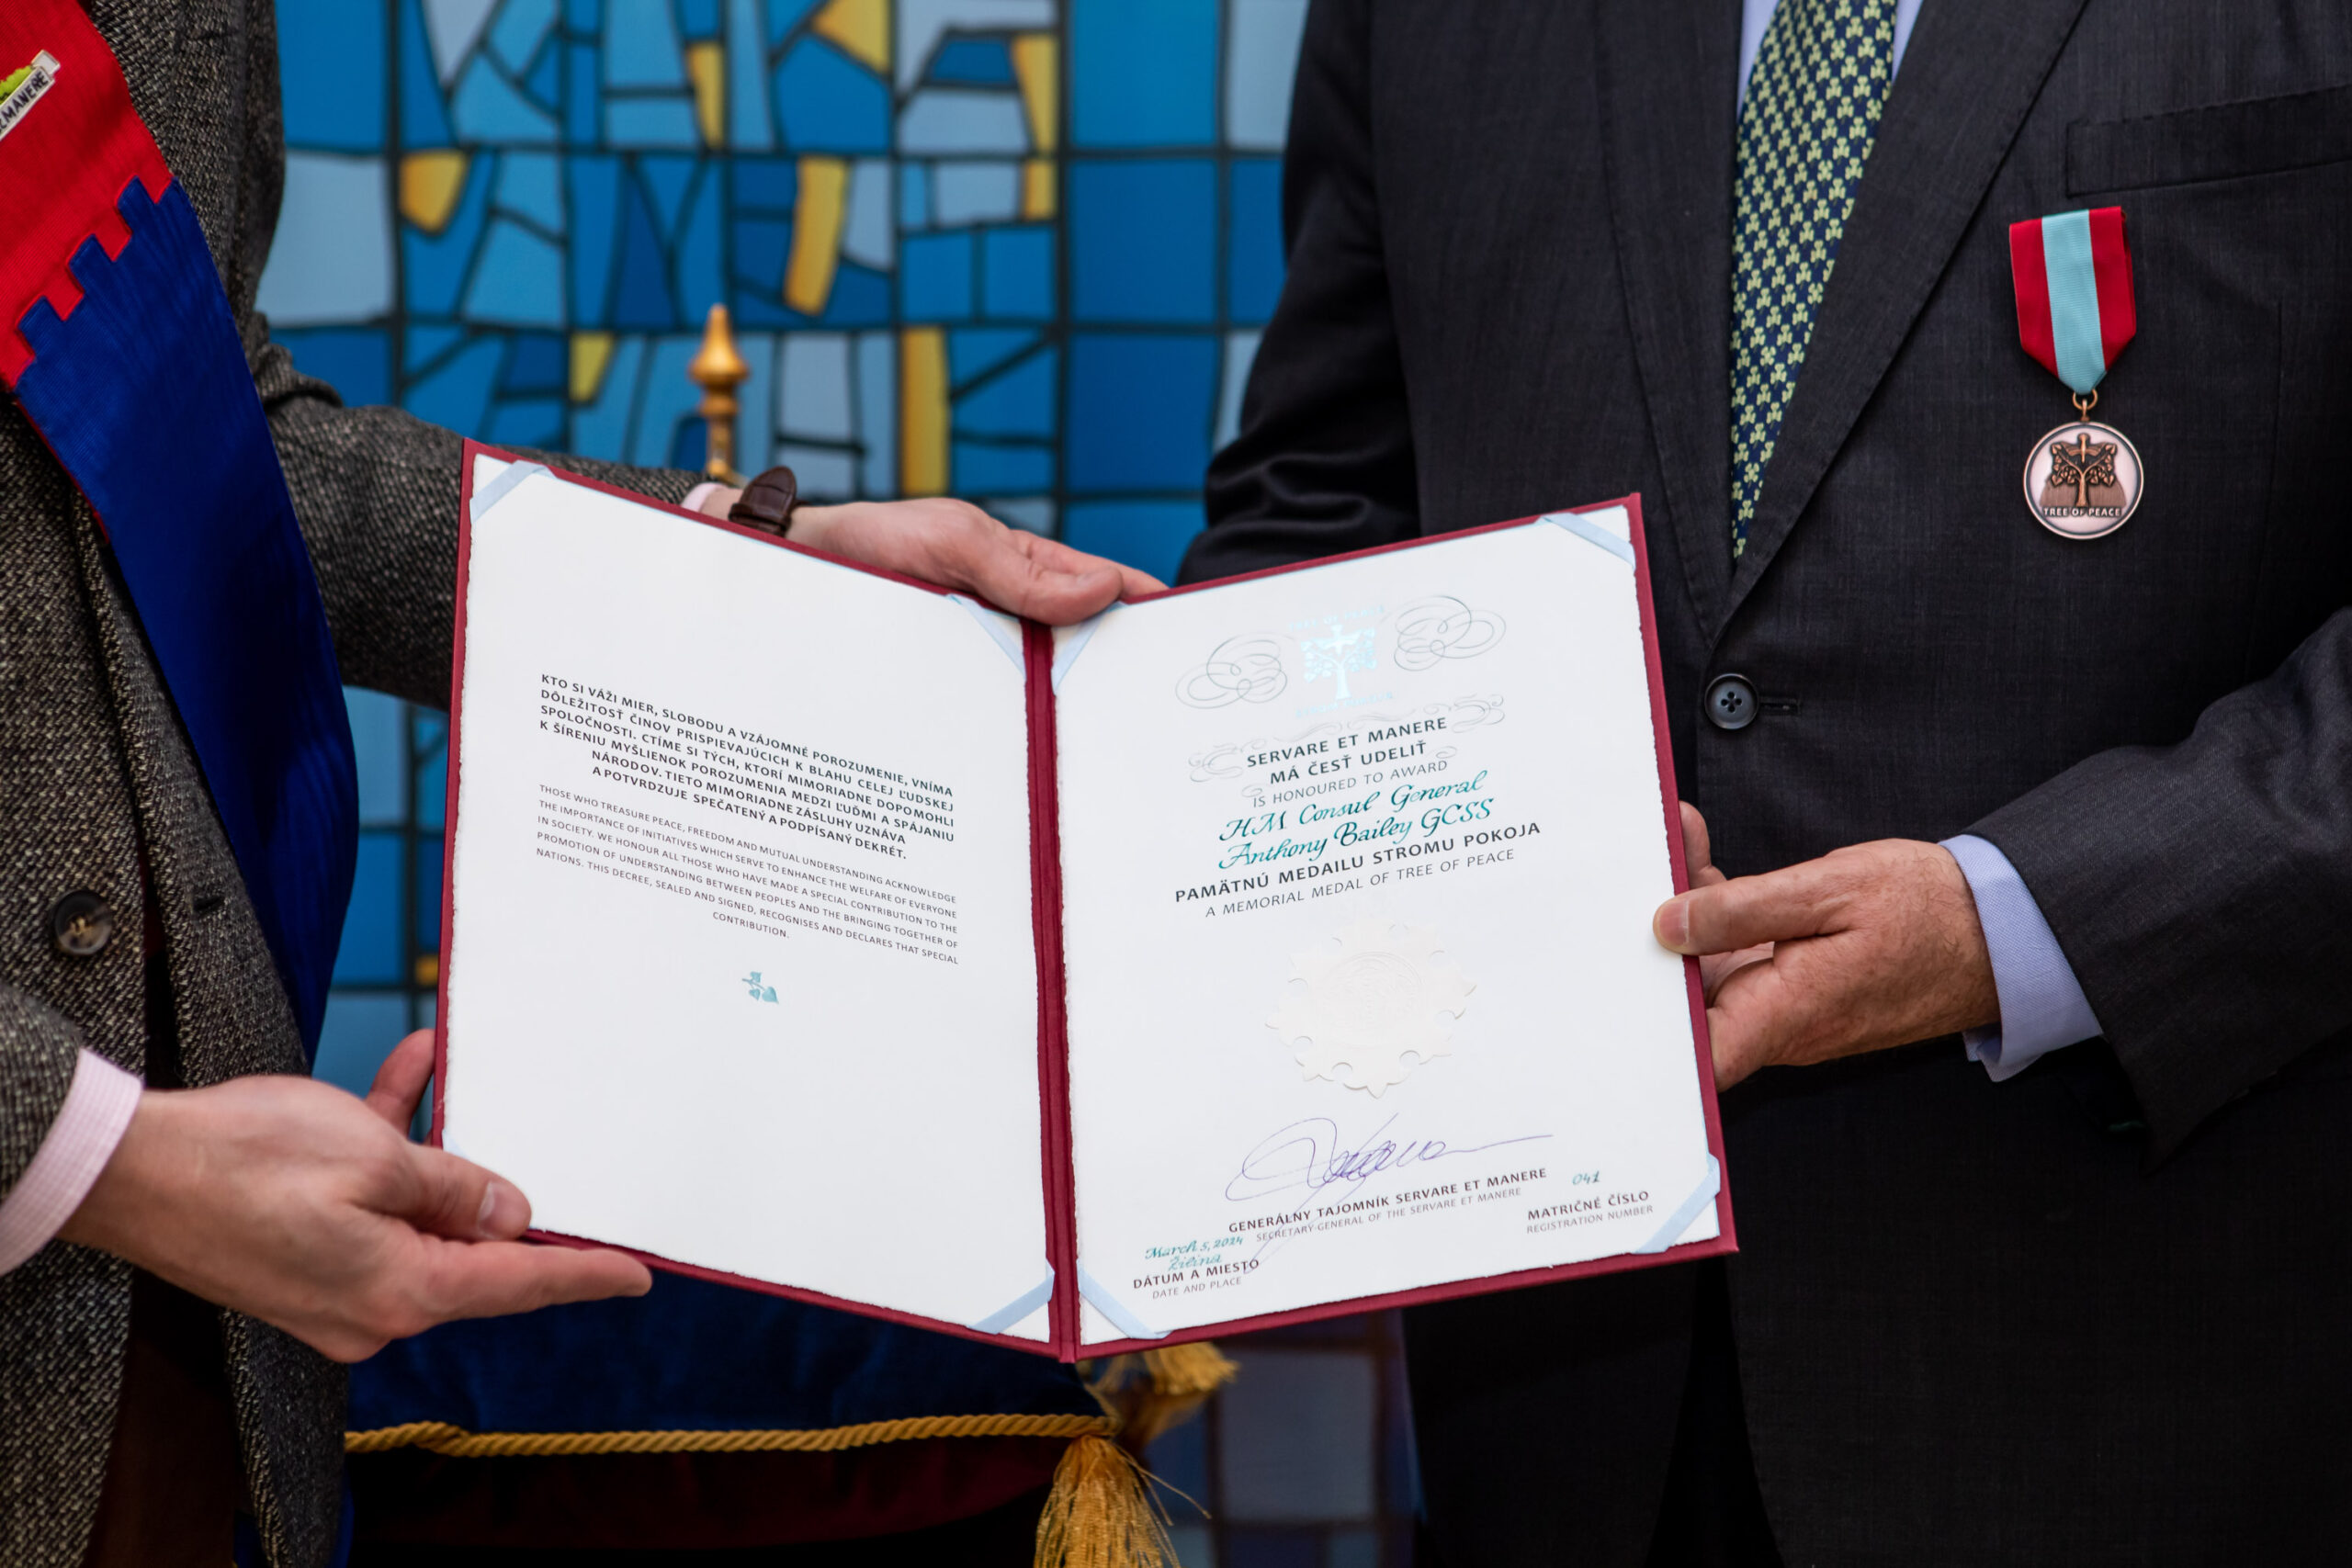 MANERE
KTO SI VÁŽI MIER, SLOBODU A VZÁJOMNÉ POROZUMENIE, VNÍMA
DÔLEŽITOSŤ ČINOV PRISPIEVAJÚCICH K BLAHU CELEJ ĽUDSKEJ
SPOLOČNOSTI. CTÍME SI TÝCH, KTORÍ MIMORIADNE DOPOMOHLI
K ŠÍRENIU MYŠLIENOK POROZUMENIA MEDZI ĽUĎMI A SPÁJANIU
NÁRODOV. TIETO MIMORIADNE ZÁSLUHY UZNÁVA
A POTVRDZUJE SPEČATENÝ A PODPÍSANÝ DEKRÉT.
THOSE WHO TREASURE PEACE, FREEDOM AND MUTUAL UNDERSTANDING ACKNOWLEDGE
THE IMPORTANCE OF INITIATIVES WHICH SERVE TO ENHANCE THE WELFARE OF EVERYONE
IN SOCIETY. WE HONOUR ALL THOSE WHO HAVE MADE A SPECIAL CONTRIBUTION TO THE
PROMOTION OF UNDERSTANDING BETWEEN PEOPLES AND THE BRINGING TOGETHER OF
NATIONS. THIS DECREE, SEALED AND SIGNED, RECOGNISES AND DECLARES THAT SPECIAL
CONTRIBUTION.
TREE OF PEACE
SERVARE ET MANERE
MÁ ČESŤ UDELIŤ
IS HONOURED TO AWARD
HM Consul General
Anthony Bailey GCSS
PAMÄTNÚ MEDAILU STROMU POKOJA
A MEMORIAL MEDAL OF TREE OF PEACE
GENERÁLNY TAJOMNÍK SERVARE ET MANERE
SECRETARY-GENERAL OF THE SERVARE ET MANERE
041
MATRIČNÉ ČÍSLO
REGISTRATION NUMBER
March 5, 2024
Žilina
DÁTUM A MIESTO
DATE AND PLACE
TREE OF PEACE